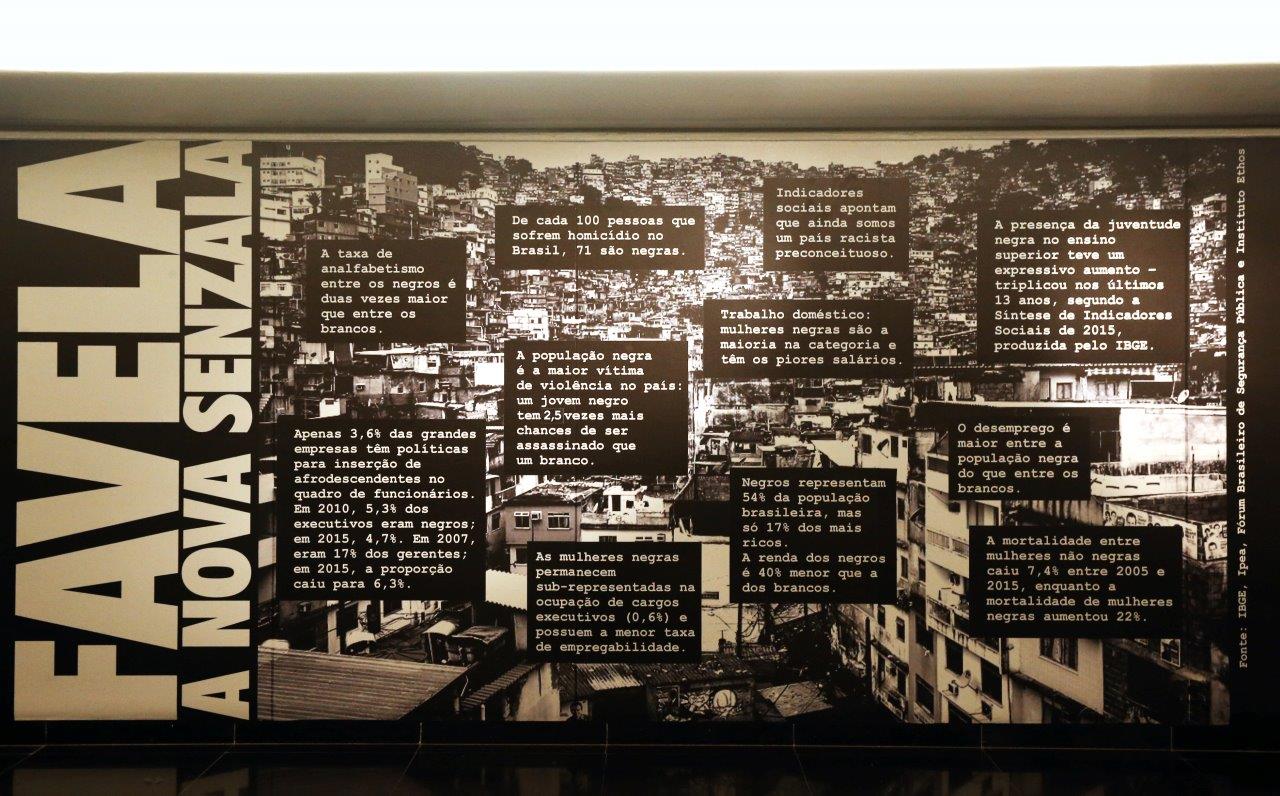 FAVELA
A NOVA SENZALA
A taxa de
analfabetismo
entre os negros é
duas vezes maior
que entre os
brancos.
De cada 100 pessoas que
sofrem homicídio no
Brasil, 71 são negras.
Indicadores
sociais apontam
que ainda somos
um país racista
preconceituoso.
A presença da juventude
negra no ensino
superior teve um
expressivo aumento –
triplicou nos últimos
13 anos, segundo a
Síntese de Indicadores
Sociais de 2015,
produzida pelo IBGE.
Trabalho doméstico:
mulheres negras são a
maioria na categoria e
têm os piores salários.
A população negra
é a maior vítima
de violência no país:
um jovem negro
tem 2,5 vezes mais
chances de ser
assassinado que
um branco.
Apenas 3,6% das grandes
empresas têm políticas
para inserção de
afrodescendentes no
quadro de funcionários.
Em 2010, 5,3% dos
executivos eram negros;
em 2015, 4,7%. Em 2007,
eram 17% dos gerentes;
em 2015, a proporção
caiu para 6,3%.
O desemprego é
maior entre a
população negra
do que entre os
brancos.
Negros representam
54% da população
brasileira, mas
só 17% dos mais
ricos.
A renda dos negros
é 40% menor que a
dos brancos.
As mulheres negras
permanecem
sub-representadas na
ocupação de cargos
executivos (0,6%) e
possuem a menor taxa
de empregabilidade.
A mortalidade entre
mulheres não negras
caiu 7,4% entre 2005 e
2015, enquanto a
mortalidade de mulheres
negras aumentou 22%.
Fonte: IBGE, Ipea, Fórum Brasileiro de Segurança Pública e Instituto Ethos